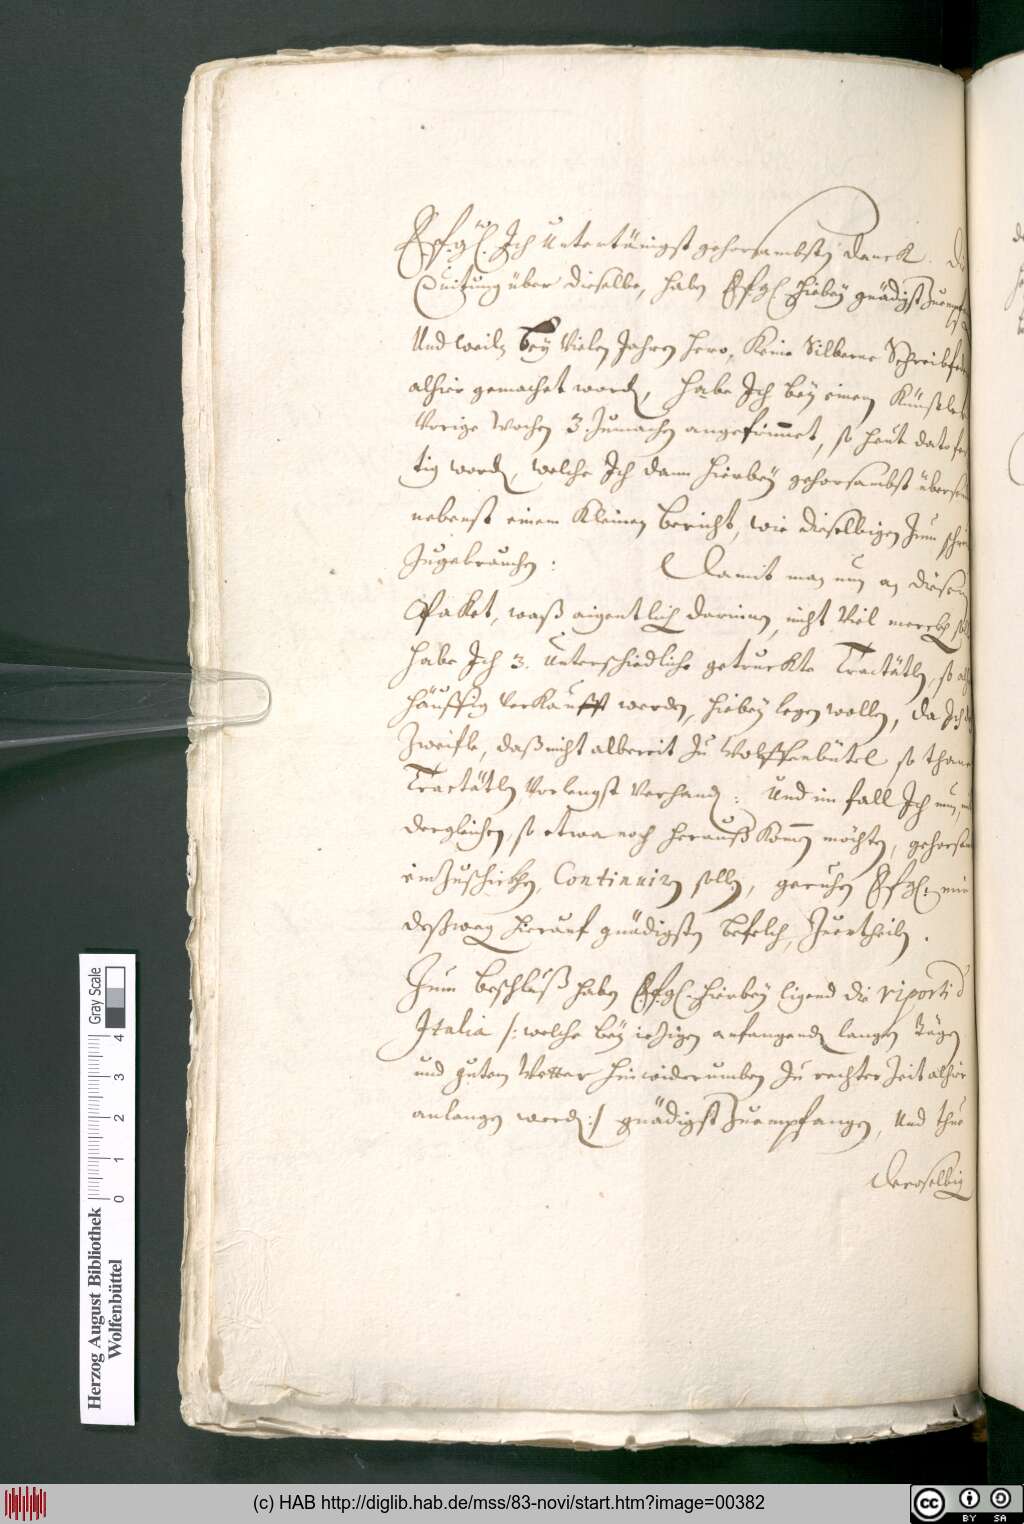 E. f. gl. Ich Untertänigst gehorsambsten Danck. Die
Quitung über dieselbe, haben E f g. hiebeÿ gnädigst Zuempf
Und weiln beÿ Vielen Jahren hero, Keine Silberne Schreibfed
alhier gemachet worden, habe Ich beÿ einem Künstler
Vorige Wochen 3. Zumachen angefrimmet, so heut dato fer
tig worden, welche Ich dann hierbeÿ gehorsambst übersen
nebenst einem Kleinen Bericht, wie dieselbigen Zum schrei
Zugebrauchen: Damit man nun an diesem
Paket, waß aigentlich darinnen, nicht Viel mercken soll
habe Ich 3. Unterschiedliche getruckte Tractätlen, so alh
häuffig Verkaufft werden, hiebeÿ legen wollen, da Ich
Zweifle, daß nicht albereit Zu Wolffenbütel so thane
Tractätlen Vorlengst Verhanden: Und im fall Ich nun,
dergleichen, so etwa noch herauß Kommen möchten, gehorsam
einZuschicken, Continuirn sollen, geruhen E f g. mir
deßweg hierauf gnädigsten befelch, Zuertheilen.
Zum Beschluß haben E. f. g. hierbeÿ ligend die riporti d'
Italia /: welche beÿ ieZigen anfangenden langen Tägen
und gutem Wetter hinwiderumben Zu rechter Zeit alhier
anlangen werden :/ gnädigst Zuempfangen, Und thue
Deroselbig
Herzog August Bibliothek
Wolfenbüttel
Gray Scale
0 1 2 3 4
(c) HAB http://diglib.hab.de/mss/83-novi/start.htm?image=00382
cc BY SA